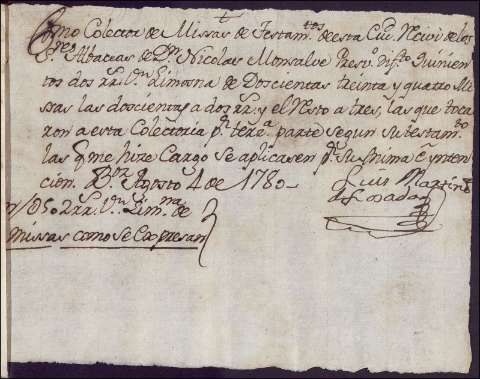 Como Colector de Missas de Testam.tos de esta Ciu.d Reciví de los
S.res Albaceas de D.n Nicolas Monsalve Presv.o dif.to quinien
tos dos rr.s v.n Limosna de Doscientas treinta y quatro Mi
sas las doscientas a dos rr.s y el Resto a tres, las que toca
ron a esta Colecturia p.r terz.a parte segun su testam.to
las q.e me hize Cargo se apliquen p.r su Anima e ynten
cion. Agosto 4 de 1780
Luis Martinez
de Losada
502 rr.s v.n Lim.na de
missas como se Expresan